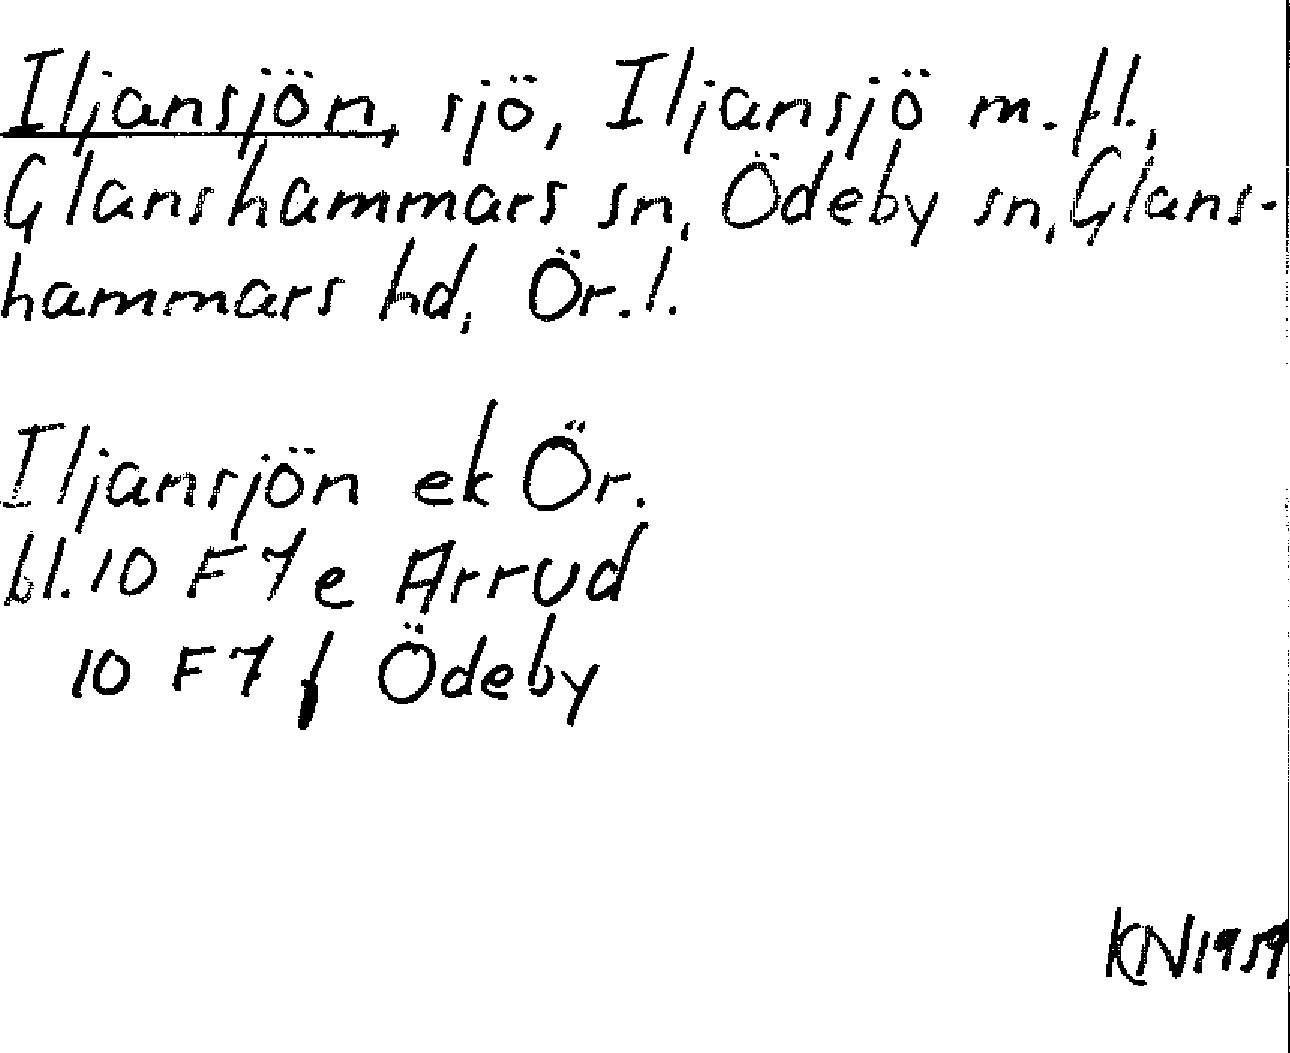 Iljansjön, sjö, Iljansjö m.fl.,
Glanshammars sn, Ödeby sn, Glans-
hammars hd, Ör.l.
Iljansjön ek Ör.
bl. 10 F 7 e Arrud
10 F 7 f Ödeby
KN 1959